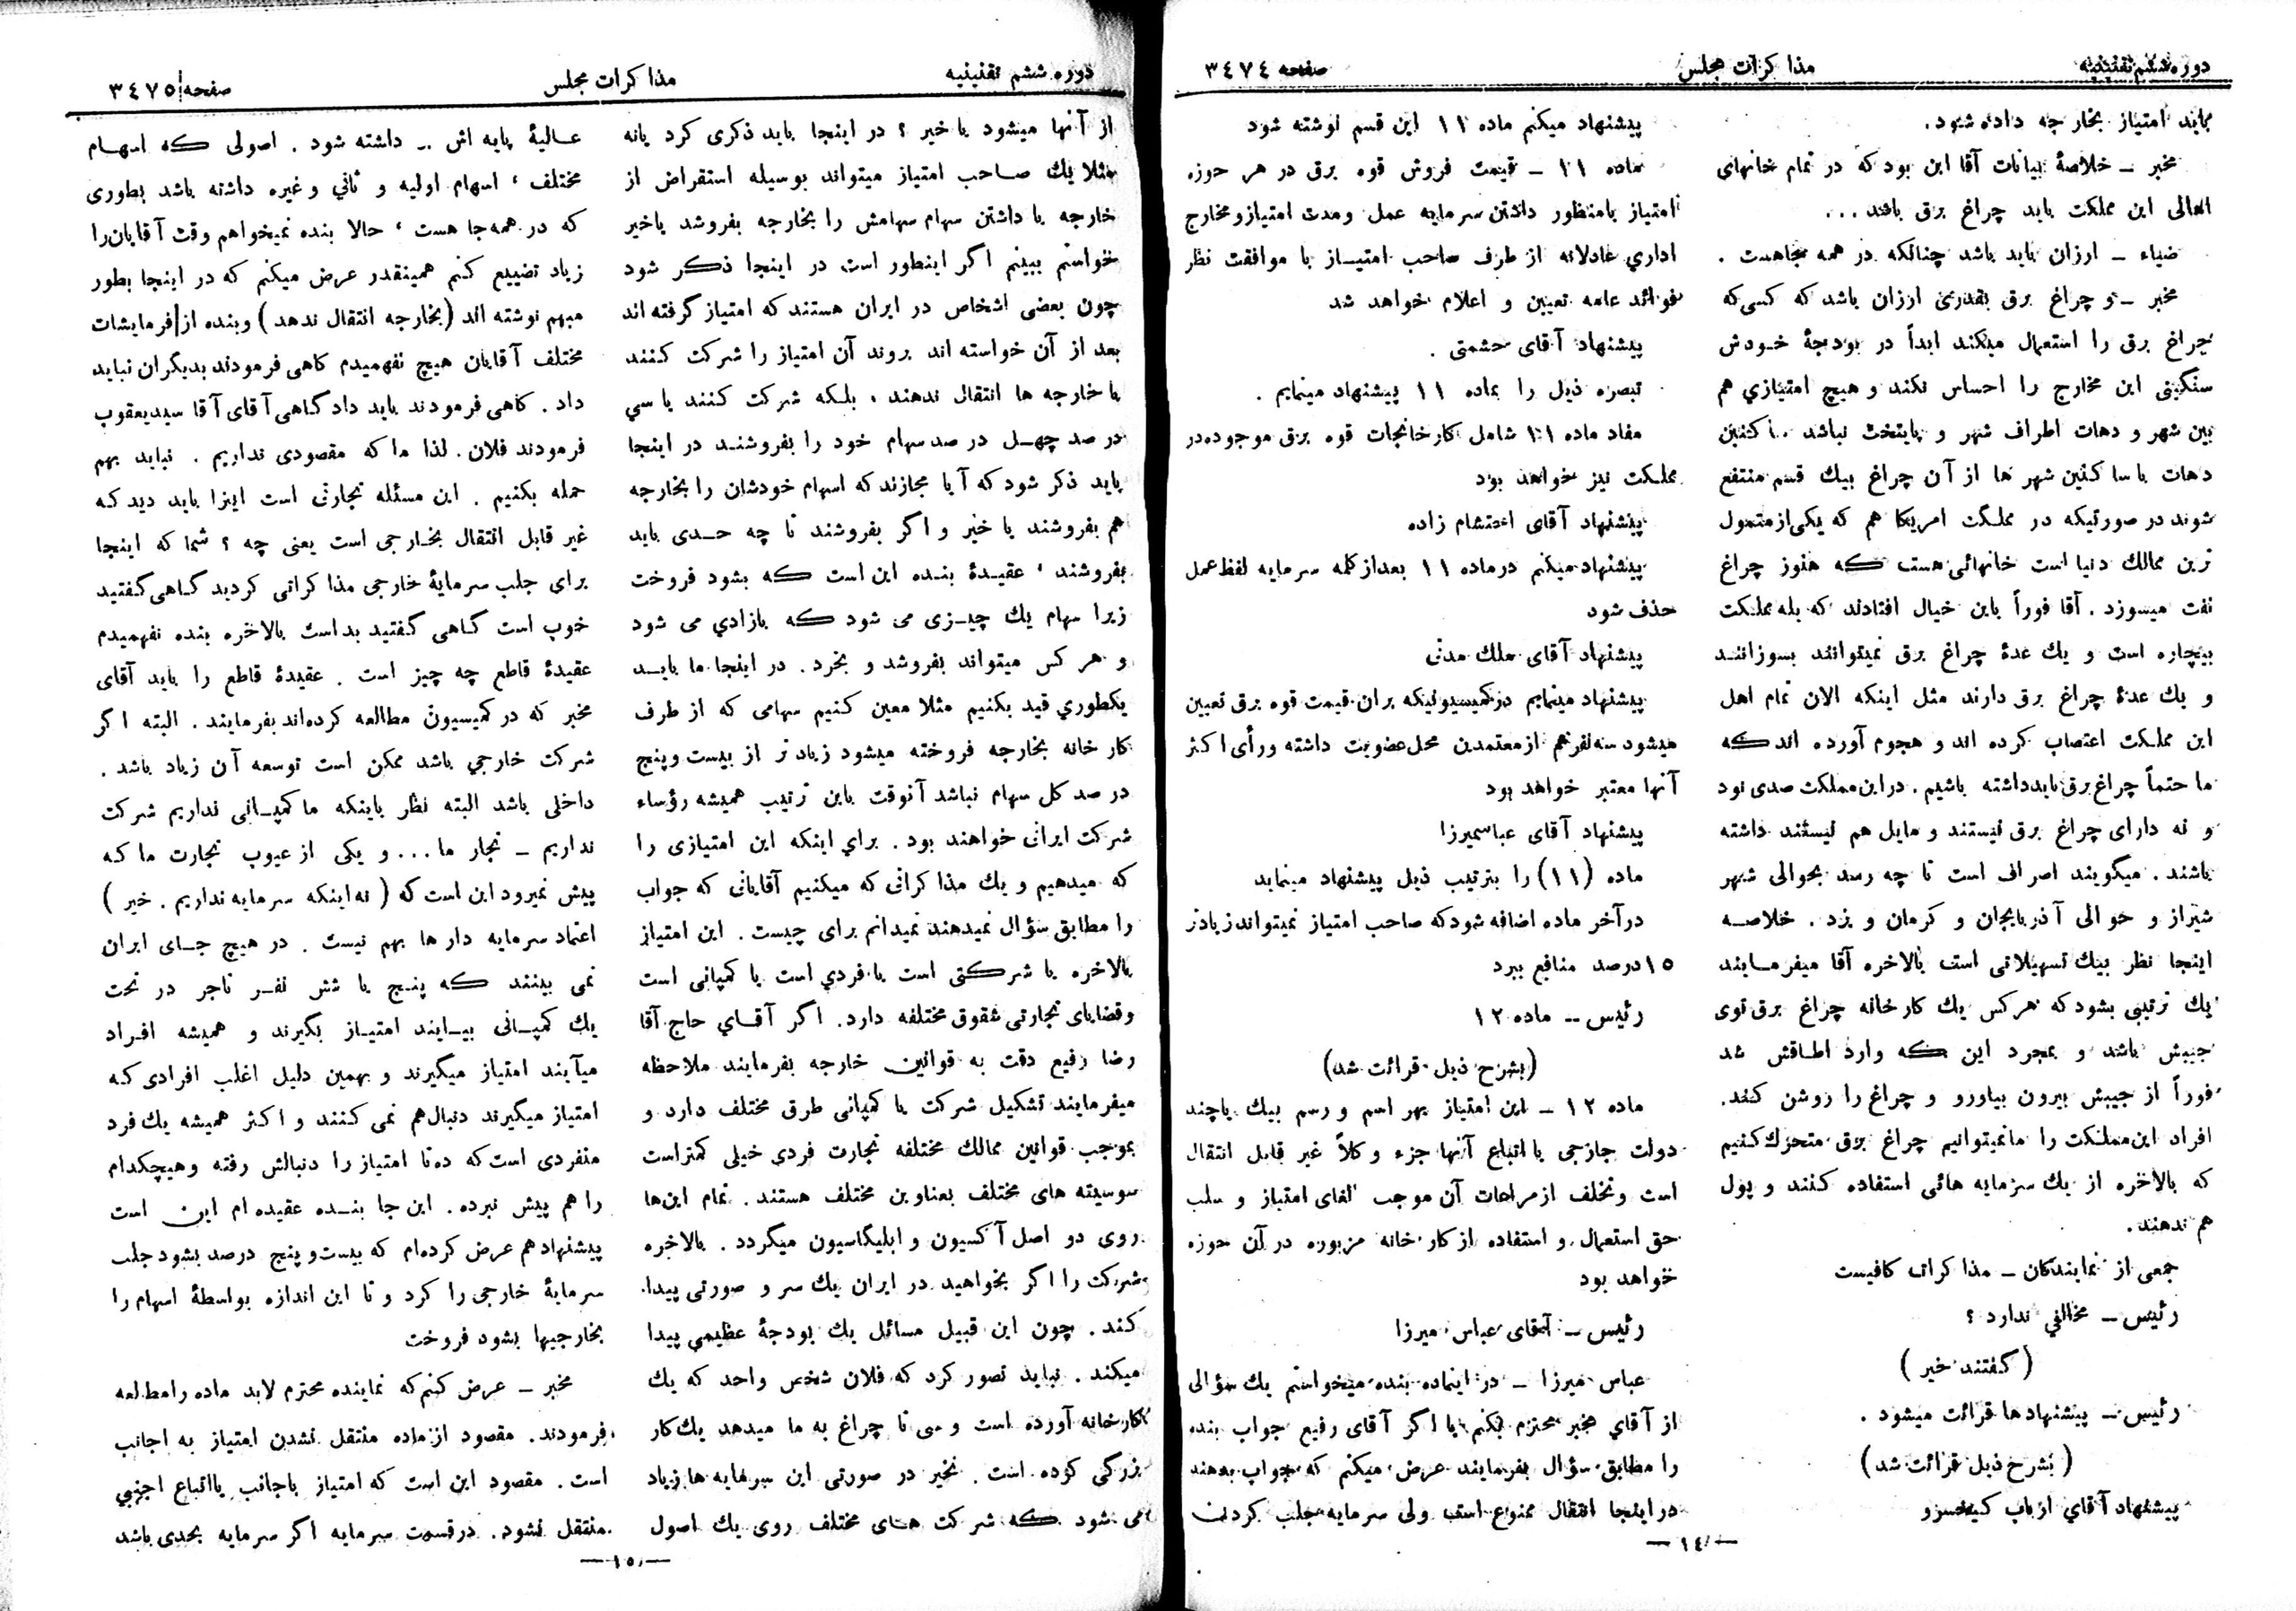 دوره ششم تقنینیه
مذاکرات مجلس
صفحه ٣٤٧٤
باید امتیاز بخارجه داده شود.
مخبر ــ خلاصهٔ بیانات آقا این بود که در تمام خانهای
اهالی این مملکت باید چراغ برق باشد...
ضیاء ــ ارزان باید باشد چنانکه در همه جاهست .
مخبر ــ و چراغ برق بقدری ارزان باشد که کسی که
چراغ برق را استعمال میکند ابداً در بودجهٔ خودش
سنگینی این مخارج را احساس نکند و هیچ امتیازي هم
بین شهر و دهات اطراف شهر و پایتخت نباشد ساکنین
دهات یا ساکنین شهر ها از آن چراغ بیك قسم منتفع
شوند در صورتیکه در مملکت امریکا هم که یکی از متمول
ترین ممالك دنیا است خانهائی هست که هنوز چراغ
نفت میسوزد . آقا فوراً باین خیال افتادند که بله مملکت
بیچاره است و یك عدهٔ چراغ برق نمیتوانند بسوزانند
و یك عدهٔ چراغ برق دارند مثل اینکه الان تمام اهل
این مملکت اعتصاب کرده اند و هجوم آورده اند که
ما حتماً چراغ برق باید داشته باشیم. در این مملکت صدی نود
و نه دارای چراغ برق نیستند و مایل هم نیستند داشته
باشند . میگویند اصراف است تا چه رسد بحوالی شهر
شیراز و حوالی آذربایجان و کرمان و یزد . خلاصه
اینجا نظر بیك تسهیلاتی است بالاخره آقا میفرمایند
یك ترتیبی بشود که هر کس یك کارخانه چراغ برق توی
جیبش باشد و بمجرد این که وارد اطاقش شد
فوراً از جیبش بیرون بیاورد و چراغ را روشن کند.
افراد این مملکت را ما نمیتوانیم چراغ برق متحرك کنیم
که بالاخره از یك سرمایه هائی استفاده کنند و پول
هم ندهند.
جمعی از نمایندگان ــ مذاکرات کافیست
رئیس ــ مخالفی ندارد ؟
( گفتند خیر )
رئیس ــ پیشنهادها قرائت میشود .
(بشرح ذیل قرائت شد)
پیشنهاد آقاي ارباب کیخسرو
پیشنهاد میکنم ماده ١١ این قسم نوشته شود
ماده ١١ ــ قیمت فروش قوه برق در هر حوزه
امتیاز با منظور داشتن سرمایه عمل و مدت امتیاز و مخارج
اداري عادلانه از طرف صاحب امتیاز با موافقت نظر
فوائد عامه تعیین و اعلام خواهد شد
پیشنهاد آقای حشمتی .
تبصره ذیل را بماده ١١ پیشنهاد مینمایم .
مفاد ماده ١١ شامل کارخانجات قوه برق موجوده در
مملکت نیز خواهد بود
پیشنهاد آقای احتشام زاده
پیشنهاد میکنم در ماده ١١ بعد از کلمه سرمایه لفظ عمل
حذف شود
پیشنهاد آقای ملك مدنی
پیشنهاد مینمایم در کمیسیونیکه بران قیمت قوه برق تعیین
میشود سه نفر هم از معتمدین محل عضویت داشته و رأی اکثر
آنها معتبر خواهد بود
پیشنهاد آقای عباسمیرزا
ماده (١١) را بترتیب ذیل پیشنهاد مینماید
در آخر ماده اضافه شود که صاحب امتیاز نمیتواند زیادتر
١٥ درصد منافع ببرد
رئیس ــ ماده ١٢
(بشرح ذیل قرائت شد)
ماده ١٢ ــ این امتیاز بهر اسم و رسم بیك یا چند
دولت خارجی یا اتباع آنها جزء و کلاً غیر قابل انتقال
است و تخلف از مراعات آن موجب الغای امتیاز و سلب
حق استعمال و استفاده از کارخانه مزبوره در آن حوزه
خواهد بود
رئیس ــ آقای عباس میرزا
عباس میرزا ــ در اینماده بنده میخواستم یك سؤالی
از آقاي مخبر محترم بکنم یا اگر آقای رفیع جواب بنده
را مطابق سؤال بفرمایند عرض میکنم که جواب بدهند
در اینجا انتقال ممنوع است ولی سرمایه جلب کردن
ــ ١٤ ــ
دوره ششم تقنینیه
مذاکرات مجلس
صفحه ٣٤٧٥
از آنها میشود یا خیر ؟ در اینجا باید ذکری کرد یا نه
مثلا یك صاحب امتیاز میتواند بوسیله استقراض از
خارجه یا داشتن سهام سهامش را بخارجه بفروشد یا خیر
خواستم ببینم اگر اینطور است در اینجا ذکر شود
چون بعضی اشخاص در ایران هستند که امتیاز گرفته اند
بعد از آن خواسته اند بروند آن امتیاز را شرکت کنند
با خارجه ها انتقال ندهند ، بلکه شرکت کنند یا سي
در صد چهل در صد سهام خود را بفروشند در اینجا
باید ذکر شود که آیا مجازند که اسهام خودشان را بخارجه
هم بفروشند یا خیر و اگر بفروشند تا چه حدی باید
بفروشند ، عقیدهٔ بنده این است که بشود فروخت
زیرا سهام یك چیزی می شود که بازادي می شود
و هر کس میتواند بفروشد و بخرد . در اینجا ما باید
یکطوري قید بکنیم مثلا معین کنیم سهامی که از طرف
کارخانه بخارجه فروخته میشود زیاد تر از بیست و پنج
در صد کل سهام نباشد آنوقت باین ترتیب همیشه رؤساء
شرکت ایرانی خواهند بود . براي اینکه این امتیازی را
که میدهیم و یك مذاکراتی که میکنیم آقایانی که جواب
را مطابق سؤال نمیدهند نمیدانم برای چیست . این امتیاز
بالاخره یا شرکتی است یا فردي است یا کمپانی است
و قضایای تجارتی شقوق مختلفه دارد. اگر آقاي حاج آقا
رضا رفیع دقت به قوانین خارجه بفرمایند ملاحظه
میفرمایند تشکیل شرکت یا کمپانی طرق مختلف دارد و
بموجب قوانین ممالك مختلفه تجارت فردي خیلی کمتر است
سوسیته های مختلف بعناوین مختلف هستند . تمام این ها
روی دو اصل آکسیون و ابلیگاسیون میگردد . بالاخره
شرکت را اگر بخواهید در ایران یك سر و صورتی پیدا
کند . چون این قبیل مسائل یك بودجهٔ عظیمي پیدا
میکند . نباید تصور کرد که فلان شخص واحد که یك
کارخانه آورده است و سی تا چراغ به ما میدهد یك کار
بزرگی کرده است . نخیر در صورتی این سرمایه ها زیاد
می شود که شرکت های مختلف روی یك اصول
عالیهٔ پایه اش .. داشته شود . اصولی که اسهام
مختلف ، اسهام اولیه و ثاني و غیره داشته باشد بطوری
که در همه جا هست ، حالا بنده نمیخواهم وقت آقایان را
زیاد تضییع کنم همینقدر عرض میکنم که در اینجا بطور
مبهم نوشته اند (بخارجه انتقال ندهد) و بنده از فرمایشات
مختلف آقایان هیچ نفهمیدم گاهی فرمودند بدیگران نباید
داد . گاهی فرمودند باید داد گاهی آقای آقا سید یعقوب
فرمودند فلان . لذا ما که مقصودی نداریم . نباید بهم
حمله بکنیم . این مسئله تجارتی است اینرا باید دید که
غیر قابل انتقال بخارجی است یعنی چه ؟ شما که اینجا
برای جلب سرمایهٔ خارجی مذاکراتی کردید گاهی گفتید
خوب است گاهی گفتید بد است بالاخره بنده نفهمیدم
عقیدهٔ قاطع چه چیز است . عقیدهٔ قاطع را باید آقای
مخبر که در کمیسیون مطالعه کرده اند بفرمایند . البته اگر
شرکت خارجي باشد ممکن است توسعه آن زیاد باشد .
داخلی باشد البته نظر باینکه ما کمپانی نداریم شرکت
نداریم ــ تجار ما ... و یکی از عیوب تجارت ما که
پیش نمیرود این است که ( نه اینکه سرمایه نداریم . خیر )
اعتماد سرمایه دار ها بهم نیست . در هیچ جای ایران
نمی بینند که پنج یا شش نفر تاجر در تحت
یك کمپانی بیایند امتیاز بگیرند و همیشه افراد
میآیند امتیاز میگیرند و بهمین دلیل اغلب افرادی که
امتیاز میگیرند دنبال هم نمی کنند و اکثر همیشه یك فرد
منفردی است که ده تا امتیاز را دنبالش رفته و هیچکدام
را هم پیش نبرده . این جا بنده عقیده ام این است
پیشنهاد هم عرض کرده ام که بیست و پنج درصد بشود جلب
سرمایهٔ خارجی را کرد و تا این اندازه بواسطهٔ اسهام را
بخارجیها بشود فروخت
مخبر ــ عرض کنم که نماینده محترم لابد ماده را مطالعه
فرمودند. مقصود از ماده منتقل نشدن امتیاز به اجانب
است . مقصود این است که امتیاز باجانب یا اتباع اجنبي
منتقل نشود. در قسمت سرمایه اگر سرمایه بحدی باشد
ــ ١٥ ــ